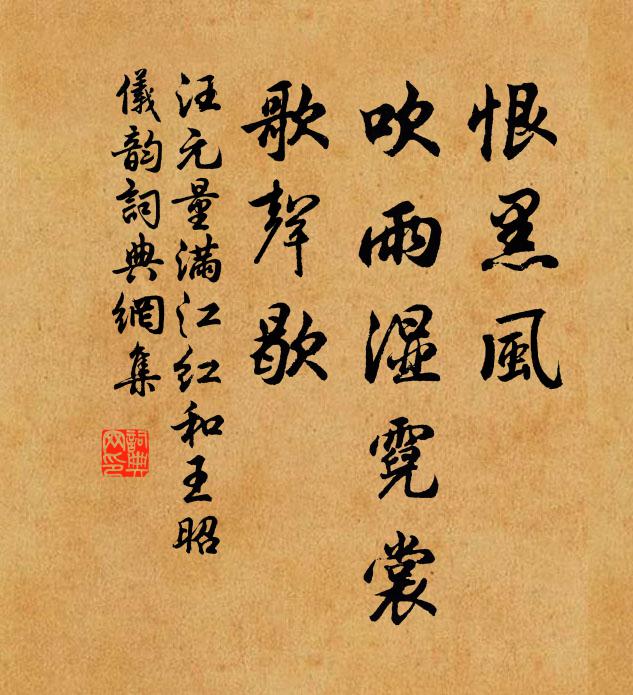 恨黑風
吹雨濕霓裳
歌聲歇
汪元量滿江紅和王昭
儀韵詞典網集
詞典網印